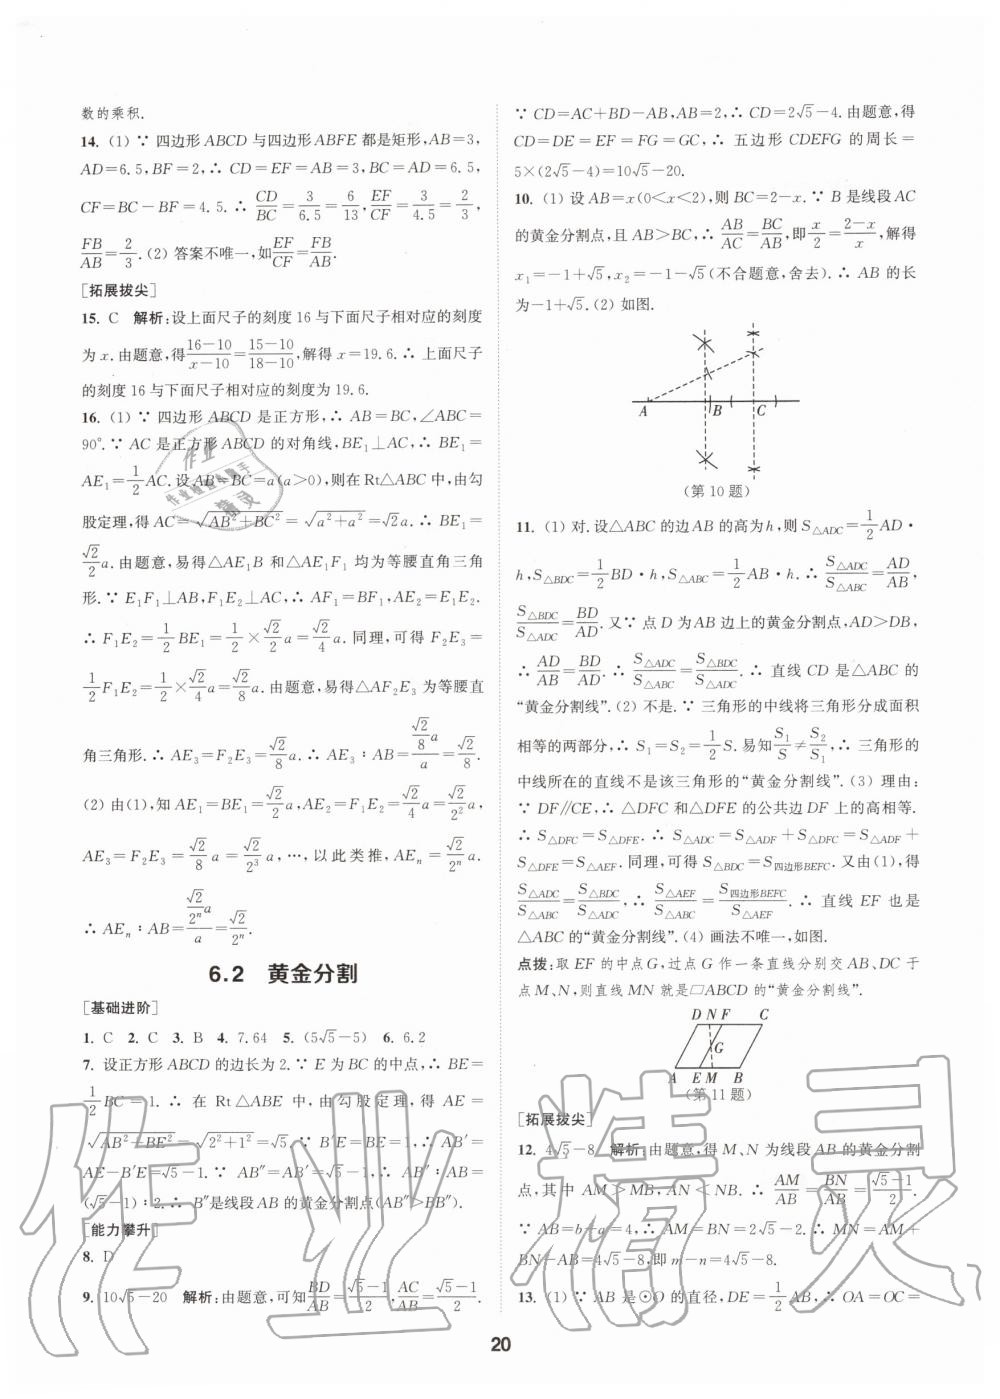 数的乘积.
14. (1) ∵ 四边形 ABCD 与四边形 ABFE 都是矩形, AB=3,
AD=6.5, BF=2, ∴ CD=EF=AB=3, BC=AD=6.5,
CF=BC-BF=4.5. ∴ CD/BC=3/6.5=6/13, EF/CF=3/4.5=2/3,
FB/AB=2/3. (2) 答案不唯一, 如 EF/CF=FB/AB.
[拓展拔尖]
15. C 解析: 设上面尺子的刻度 16 与下面尺子相对应的刻度
为 x. 由题意, 得 (16-10)/(x-10)=(15-10)/(18-10), 解得 x=19.6. ∴ 上面尺子
的刻度 16 与下面尺子相对应的刻度为 19.6.
16. (1) ∵ 四边形 ABCD 是正方形, ∴ AB=BC, ∠ABC=
90°. ∵ AC 是正方形 ABCD 的对角线, BE₁⊥AC, ∴ BE₁=
AE₁=1/2 AC. 设 AB=BC=a(a>0), 则在 Rt△ABC 中, 由勾
股定理, 得 AC=√(AB²+BC²)=√(a²+a²)=√2a. ∴ BE₁=
√2/2 a. 由题意, 易得△AE₁B 和△AE₁F₁ 均为等腰直角三角
形. ∵ E₁F₁⊥AB, F₁E₂⊥AC, ∴ AF₁=BF₁, AE₂=E₁E₂.
∴ F₁E₂=1/2 BE₁=1/2×√2/2 a=√2/4 a. 同理, 可得 F₂E₃=
1/2 F₁E₂=1/2×√2/4 a=√2/8 a. 由题意, 易得△AF₂E₃ 为等腰直
角三角形. ∴ AE₃=F₂E₃=√2/8 a. ∴ AE₃∶AB=(√2/8 a)/a=√2/8.
(2) 由(1), 知 AE₁=BE₁=√2/2 a, AE₂=F₁E₂=√2/4 a=√2/2² a,
AE₃=F₂E₃=√2/8 a=√2/2³ a, …, 以此类推, AEₙ=√2/2ⁿ a.
∴ AEₙ∶AB=(√2/2ⁿ a)/a=√2/2ⁿ.
6.2 黄金分割
[基础进阶]
1. C 2. C 3. B 4. 7.64 5. (5√5-5) 6. 6.2
7. 设正方形 ABCD 的边长为 2. ∵ E 为 BC 的中点, ∴ BE=
1/2 BC=1. ∴ 在 Rt△ABE 中, 由勾股定理, 得 AE=
√(AB²+BE²)=√(2²+1²)=√5. ∵ B′E=BE=1, ∴ AB′=
AE-B′E=√5-1. ∵ AB″=AB′=√5-1, ∴ AB″∶AB=
(√5-1)∶2. ∴ B″是线段 AB 的黄金分割点(AB″>BB″).
[能力攀升]
8. D
9. 10√5-20 解析: 由题意, 可知 BD/AB=(√5-1)/2, AC/AB=(√5-1)/2.
∵ CD=AC+BD-AB, AB=2, ∴ CD=2√5-4. 由题意, 得
CD=DE=EF=FG=GC, ∴ 五边形 CDEFG 的周长=
5×(2√5-4)=10√5-20.
10. (1) 设 AB=x(0<x<2), 则 BC=2-x. ∵ B 是线段 AC
的黄金分割点, 且 AB>BC, ∴ AB/AC=BC/AB, 即 x/2=(2-x)/x, 解得
x₁=-1+√5, x₂=-1-√5(不合题意, 舍去). ∴ AB 的长
为-1+√5. (2) 如图.
A B C
(第 10 题)
11. (1) 对. 设△ABC 的边 AB 的高为 h, 则 S△ADC=1/2 AD·
h, S△BDC=1/2 BD·h, S△ABC=1/2 AB·h. ∴ S△ADC/S△ABC=AD/AB,
S△BDC/S△ADC=BD/AD. 又∵ 点 D 为 AB 边上的黄金分割点, AD>DB,
∴ AD/AB=BD/AD. ∴ S△ADC/S△ABC=S△BDC/S△ADC. ∴ 直线 CD 是△ABC 的
“黄金分割线”. (2) 不是. ∵ 三角形的中线将三角形分成面积
相等的两部分, ∴ S₁=S₂=1/2 S. 易知 S₁/S≠S₂/S₁, ∴ 三角形的
中线所在的直线不是该三角形的“黄金分割线”. (3) 理由:
∵ DF∥CE, ∴ △DFC 和△DFE 的公共边 DF 上的高相等.
∴ S△DFC=S△DFE. ∴ S△ADC=S△ADF+S△DFC=S△ADF+
S△DFE=S△AEF. 同理, 可得 S△BDC=S四边形BEFC. 又由(1), 得
S△ADC/S△ABC=S△BDC/S△ADC, ∴ S△AEF/S△ABC=S四边形BEFC/S△AEF. ∴ 直线 EF 也是
△ABC 的“黄金分割线”. (4) 画法不唯一, 如图.
点拨: 取 EF 的中点 G, 过点 G 作一条直线分别交 AB、DC 于
点 M、N, 则直线 MN 就是▱ABCD 的“黄金分割线”.
D N F C
G
A E M B
(第 11 题)
[拓展拔尖]
12. 4√5-8 解析: 由题意, 得 M、N 为线段 AB 的黄金分割
点, 其中 AM>MB, AN<NB. ∴ AM/AB=BN/AB=(√5-1)/2.
∵ AB=b-a=4, ∴ AM=BN=2√5-2. ∴ MN=AM+
BN-AB=4√5-8, 即 m-n=4√5-8.
13. (1) ∵ AB 是⊙O 的直径, DE=1/2 AB, ∴ OA=OC=
20
作业精灵